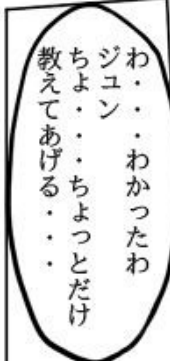 わ・・・わかったわ
ジュン
ちょ・・・ちょっとだけ
教えてあげる・・・